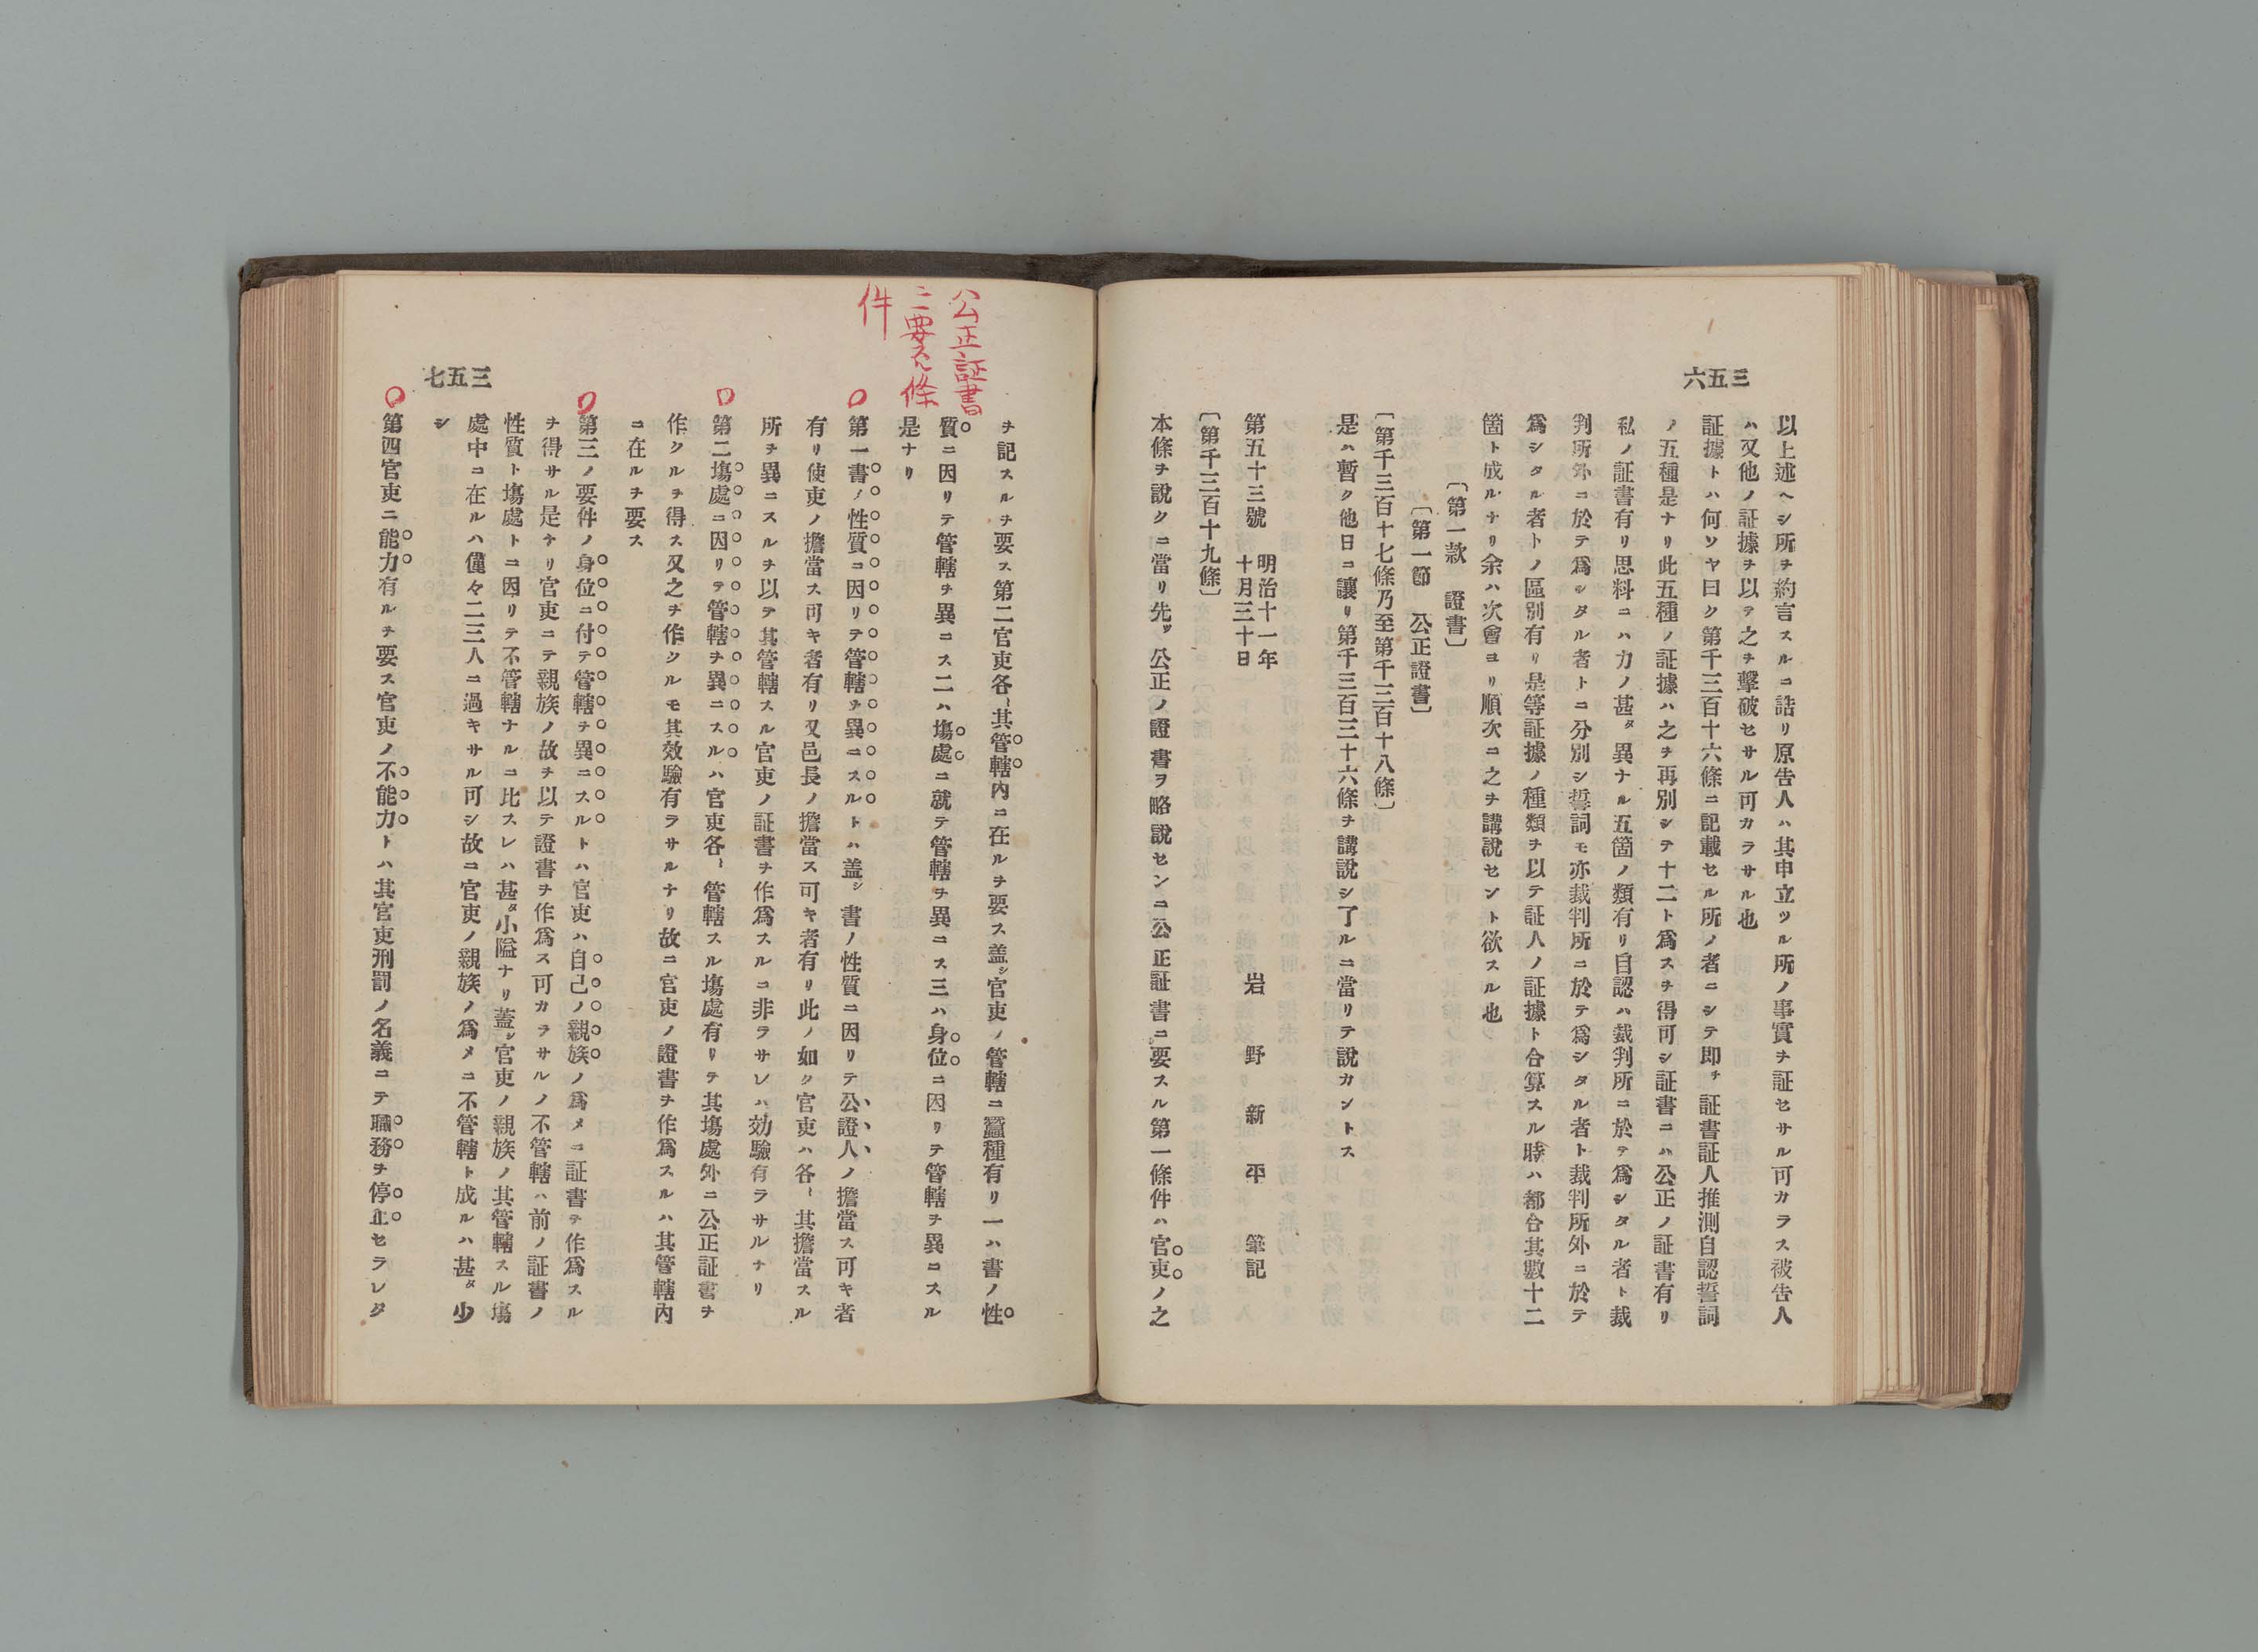 三五六
以上述ヘシ所ヲ約言スルニ詰リ原告人ハ其申立ツル所ノ事實ヲ証セサル可カラス被告人
ハ又他ノ証據ヲ以テ之ヲ擊破セサル可カラサル也
証據トハ何ソヤ曰ク第千三百十六條ニ記載セル所ノ者ニシテ即チ証書証人推測自認誓詞
ノ五種是ナリ此五種ノ証據ハ之ヲ再別シテ十二ト爲スヲ得可シ証書ニハ公正ノ証書有リ
私ノ証書有リ思料ニハ力ノ甚タ異ナル五箇ノ類有リ自認ハ裁判所ニ於テ爲シタル者ト裁
判所外ニ於テ爲シタル者トニ分別シ誓詞モ亦裁判所ニ於テ爲シタル者ト裁判所外ニ於テ
爲シタル者トノ區別有リ是等証據ノ種類ヲ以テ証人ノ証據ト合算スル時ハ都合其數十二
箇ト成ルナリ余ハ次會ヨリ順次ニ之ヲ講說セント欲スル也
〔第一款 證書〕
〔第一節 公正證書〕
〔第千三百十七條乃至第千三百十八條〕
是ハ暫ク他日ニ讓リ第千三百三十六條ヲ講說シ了ルニ當リテ說カントス
第五十三號 明治十一年十月三十日 岩野新平 筆記
〔第千三百十九條〕
本條ヲ說クニ當リ先ツ公正ノ證書ヲ略說センニ公正証書ニ要スル第一條件ハ官吏ノ之
三五七
公正証書
ニ要スル條
件
ヲ記スルヲ要ス第二官吏各〻其管轄內ニ在ルヲ要ス蓋シ官吏ノ管轄ニ三種有リ一ハ書ノ性
質ニ因リテ管轄ヲ異ニス二ハ塲處ニ就テ管轄ヲ異ニス三ハ身位ニ因リテ管轄ヲ異ニスル
是ナリ
第一書ノ性質ニ因リテ管轄ヲ異ニスルトハ蓋シ書ノ性質ニ因リテ公證人ノ擔當ス可キ者
有リ使吏ノ擔當ス可キ者有リ又邑長ノ擔當ス可キ者有リ此ノ如ク官吏ハ各〻其擔當スル
所ヲ異ニスルヲ以テ其管轄スル官吏ノ証書ヲ作爲スルニ非ラサレハ効驗有ラサルナリ
第二塲處ニ因リテ管轄ヲ異ニスルハ官吏各〻管轄スル塲處有リテ其塲處外ニ公正証書ヲ
作クルヲ得ス又之ヲ作クルモ其效驗有ラサルナリ故ニ官吏ノ證書ヲ作爲スルハ其管轄內
ニ在ルヲ要ス
第三ノ要件ノ身位ニ付テ管轄ヲ異ニスルトハ官吏ハ自己ノ親族ノ爲メニ証書ヲ作爲スル
ヲ得サル是ナリ官吏ニテ親族ノ故ヲ以テ證書ヲ作爲ス可カラサルノ不管轄ハ前ノ証書ノ
性質ト塲處トニ因リテ不管轄ナルニ比スレハ甚タ小隘ナリ蓋シ官吏ノ親族ノ其管轄スル塲
處中ニ在ルハ僅々二三人ニ過キサル可シ故ニ官吏ノ親族ノ爲メニ不管轄ト成ルハ甚タ少
シ
第四官吏ニ能力有ルヲ要ス官吏ノ不能力トハ其官吏刑罰ノ名義ニテ職務ヲ停止セラレタ